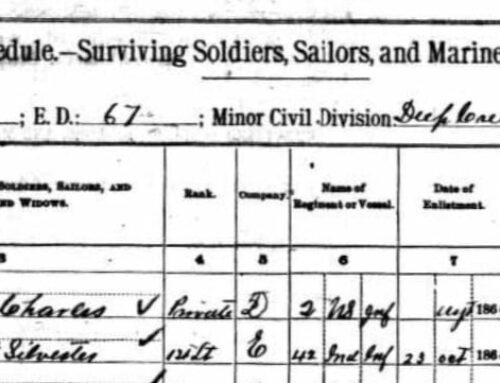 edule.—Surviving Soldiers, Sailors, and Marine
; E. D.: 67 ; Minor Civil Division: Deep Cree
SOLDIERS, SAILORS, AND Rank. Company. Name of Date of
ED WIDOWS. Regiment or Vessel. Enlistment.
3 4 5 6 7
Charles ✓ Private D 2 Inf 186
Silvester ✓ E 42 Ind Inf 23 Oct 186